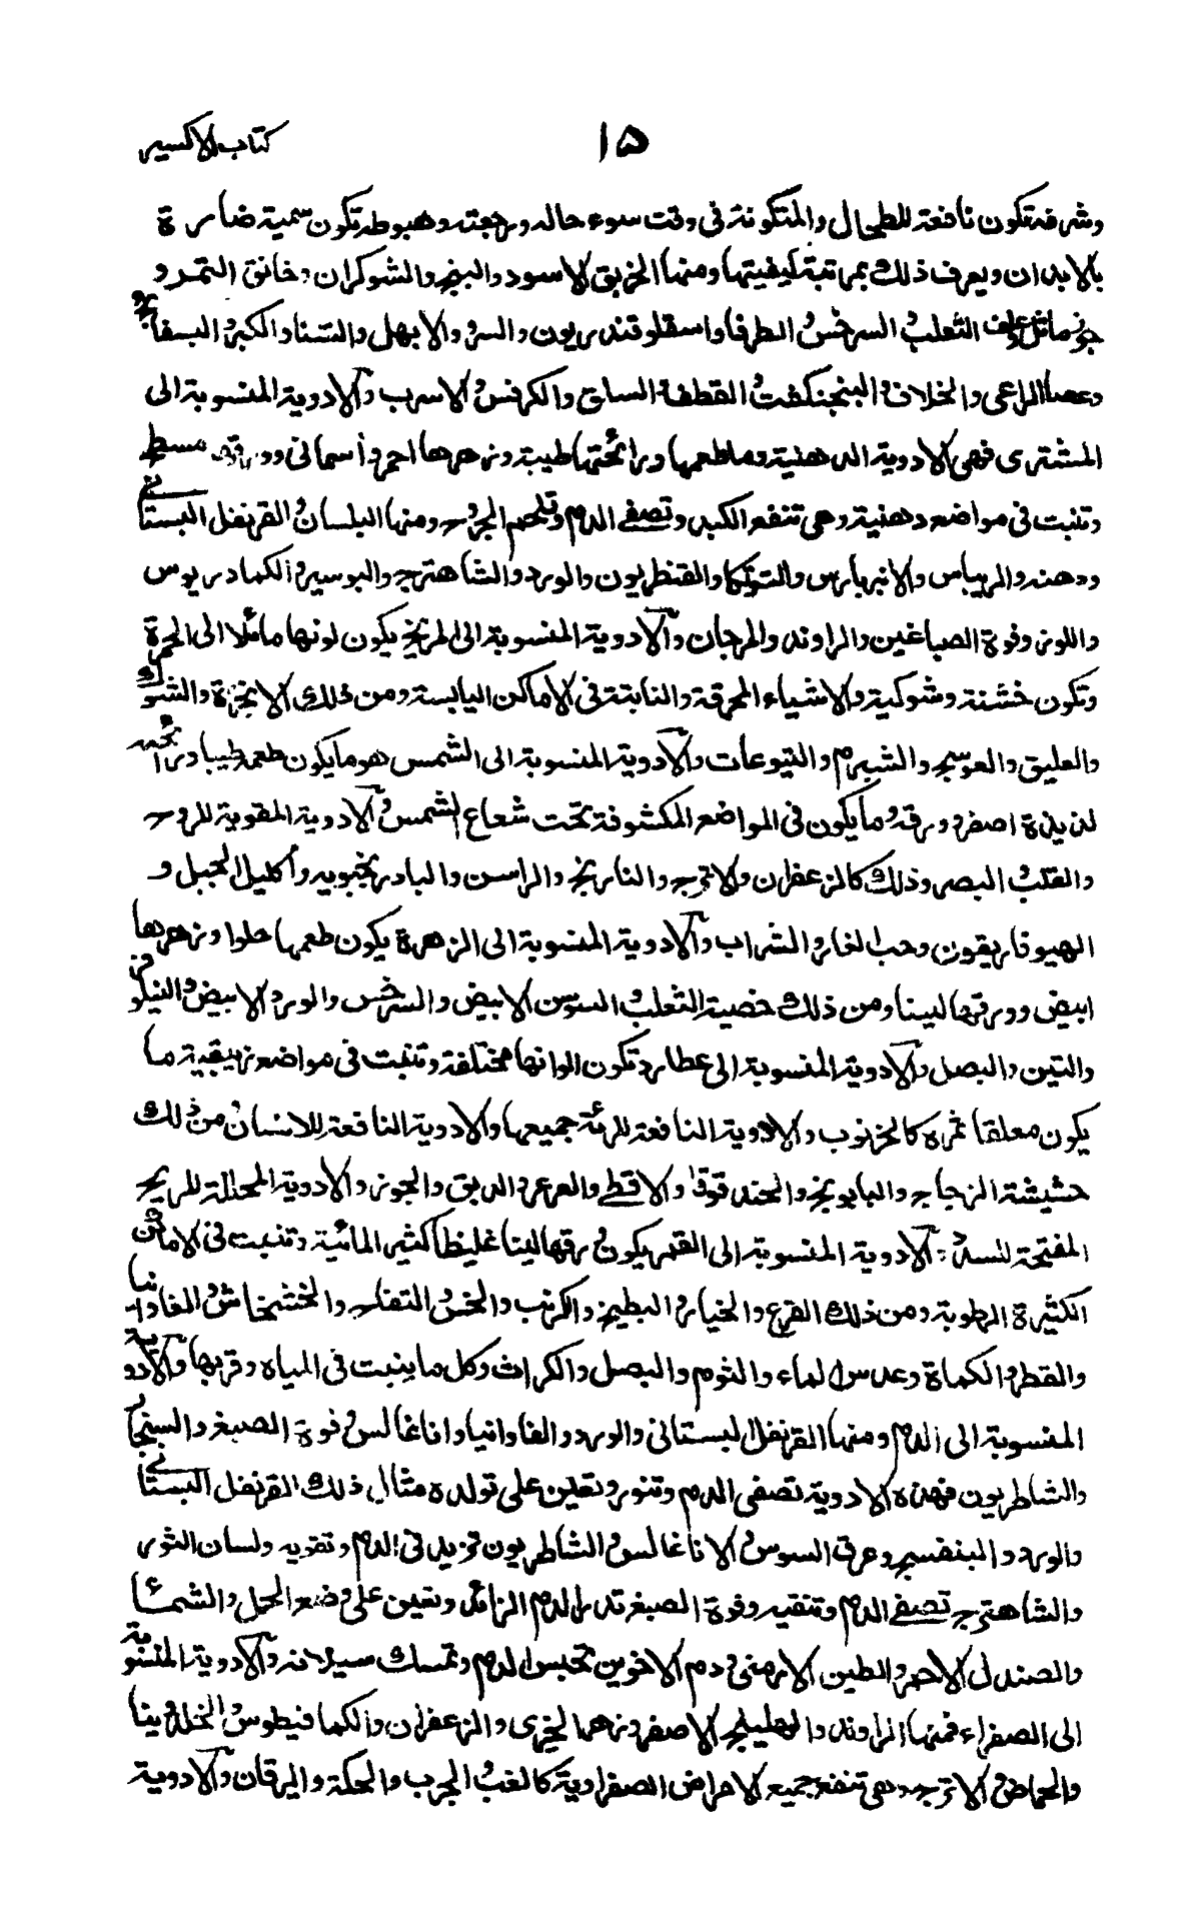 كتاب الاكسير
١٥
وشرفه تكون نافعة للطحال والمتكونة فى وقت سوء حاله ورجعته وهبوطه تكون سمية ضارة
بالابدان ويعرف ذلك بمراتبة كيفيتها ومنها الخربق الاسود والبنج والشوكران وخانق النمر و
جوز ماثل الثعلب السرخس الطرفا واسقلوقندريون والسرو الابهل والسنا والكبر البسفائج
وعصا الراعى والخلاف البنجنكشت القطف الساق والكرفس الاسرب والادوية المنسوبة الى
المشترى فهى الادوية الدهنية وماطعمها ورائحتها طيبة وزهرها احمر وأسمانى وورقه مسطح
وتنبت فى مواضع دهنية وهى تنفع الكبد وتصفى الدم وتلحم الجروح ومنها البلسان القرنفل البستانى
ودهنه والريباس والانبرباريس والقنطريون والورد والشاهترج والبوسير والكمادريوس
واللوز وفوة الصباغين والراوند والمرجان والادوية المنسوبة الى المريخ يكون لونها مائلا الى الحمرة
وتكون خشنة وشوكية والاشياء المحرقة والنابتة فى الاماكن اليابسة ومن ذلك الانجرة والشوك
والعليق والعوسج والشبرم واليتوعات والادوية المنسوبة الى الشمس هو مايكون طعمه طيبا ورائحته
لذيذة اصفر وورقه ومايكون فى المواضع المكشوفة تحت شعاع الشمس والادوية المقوية للروح
والقلب البصر وذلك كالزعفران والاترج والنارنج والراسن والبادرنجبويه وأكليل الجبل و
الهيوفاريقون وحب الغار والشراب والادوية المنسوبة الى الزهرة يكون طعمها حلوا وزهرها
ابيض وورقها لينا ومن ذلك خصية الثعلب السوسن الابيض والنرجس والورد الابيض والنيلوفر
والتين والبصل والادوية المنسوبة الى عطارد تكون الوانها مختلفة وتنبت فى مواضع زيبقية ما
يكون معلقا ثمره كالخرنوب والادوية النافعة للرئة جميعها والادوية النافعة للانسان من ذلك
حشيشة الزجاج والبابونج والحندقوقا والاقطى والعرعر والدبق والجوز والادوية المحللة للريح
المفتحة للسدد والادوية المنسوبة الى القمر يكون ورقها لينا غليظا كثير المائية وتنبت فى الاماكن
الكثيرة الرطوبة ومن ذلك القرع والخيار والبطيخ والكرنب والخس التفاح والخشخاش الفاوانيا
والقطر والكماة وعدس الماء والثوم والبصل والكراث وكل ماينبت فى المياه وقربها والادوية
المنسوبة الى الدم ومنها القرنفل البستانى والورد والفاوانيا واناغالس وفوة الصبغ والسبنجا
والشاطريون فهذه الادوية تصفى الدم وتنور وتعين على تولده مثال ذلك القرنفل البستانى
والورد والبنفسج وعرق السوس الاناغالس والشاطريون تزيد فى الدم وتقويه ولسان الثور
والشاهترج تصفى الدم وتنقيه وفوة الصبغ تدر الدم الزائد وتعين على وضع الحمل
والصندل الاحمر والطين الارمنى ودم الاخوين تحبس الدم وتمسك سيلانه والادوية المنسوبة
الى الصفراء فمنها الراوند والهليلج الاصفر وزهر الخيرى والزعفران والكمافيطوس
والحماض الاترج وهى تنفع جميع الامراض الصفراوية كالغب الجرب والحكة واليرقان والادوية